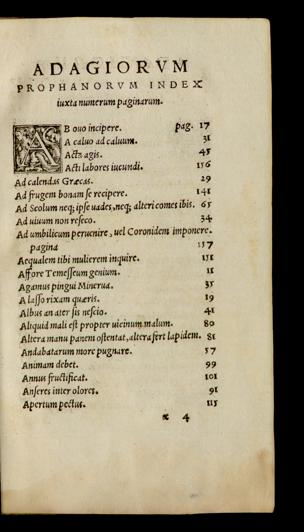 ADAGIORVM
PROPHANORVM INDEX
iuxta numerum paginarum.
AB ouo incipere. pag. 17
A caluo ad caluum. 31
Acta agis. 45
Acti labores iucundi. 156
Ad calendas Græcas. 29
Ad frugem bonam se recipere. 141
Ad Scolum neq; ipse uades, neq; alteri comes ibis. 65
Ad uiuum non reseco. 34
Ad umbilicum peruenire, uel Coronidem imponere.
pagina 157
Aequalem tibi mulierem inquire. 151
Affore Temesseum genium. 11
Agamus pingui Minerua. 35
A lasso rixam quæris. 19
Albus an ater sis nescio. 41
Aliquid mali est propter uicinum malum. 80
Altera manu panem ostentat, altera fert lapidem. 81
Andabatarum more pugnare. 57
Animam debet. 99
Annus fructificat. 101
Anseres inter olores. 91
Apertum pectus. 115
* 4